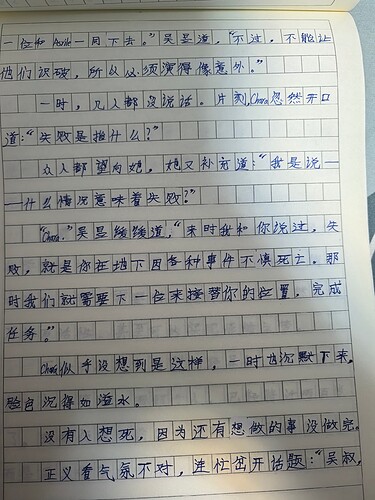 一位和 Asrile 一同下去。”吴昱道，“不过，不能让
他们识破，所以必须演得像意外。”
一时，几人都没说话。片刻，Chara忽然开口
道：“失败是指什么？”
众人都望向她，她又补充道：“我是说—
—什么情况意味着失败？”
“Chara，”吴昱缓缓道，“来时我和你说过，失
败，就是你在地下因各种事件不慎死亡。那
时我们就需要下一位来接替你的位置，完成
任务。”
Chara似乎没想到是这样，一时也沉默下来，
脸色沉得如溢水。
没有人想死，因为还有想做的事没做完。
正义看气氛不对，连忙岔开话题：“吴叔，